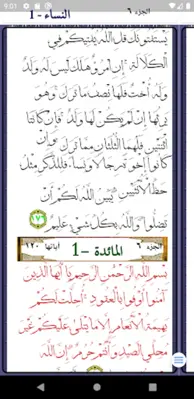 9:01
الجزء ٦ النساء - 1
يَسْتَفْتُونَكَ قُلِ اللَّهُ يُفْتِيكُمْ فِي
الْكَلَالَةِ إِنِ امْرُؤٌ هَلَكَ لَيْسَ لَهُ وَلَدٌ
وَلَهُ أُخْتٌ فَلَهَا نِصْفُ مَا تَرَكَ وَهُوَ
يَرِثُهَا إِنْ لَمْ يَكُنْ لَهَا وَلَدٌ فَإِنْ كَانَتَا
اثْنَتَيْنِ فَلَهُمَا الثُّلُثَانِ مِمَّا تَرَكَ وَإِنْ
كَانُوا إِخْوَةً رِجَالًا وَنِسَاءً فَلِلذَّكَرِ مِثْلُ
حَظِّ الْأُنْثَيَيْنِ يُبَيِّنُ اللَّهُ لَكُمْ أَنْ
تَضِلُّوا وَاللَّهُ بِكُلِّ شَيْءٍ عَلِيمٌ ١٧٦
الجزء ٦ المائدة - 1 آياتها ١٢٠
بِسْمِ اللَّهِ الرَّحْمَٰنِ الرَّحِيمِ يَا أَيُّهَا الَّذِينَ
آمَنُوا أَوْفُوا بِالْعُقُودِ أُحِلَّتْ لَكُمْ
بَهِيمَةُ الْأَنْعَامِ إِلَّا مَا يُتْلَى عَلَيْكُمْ غَيْرَ
مُحِلِّي الصَّيْدِ وَأَنْتُمْ حُرُمٌ إِنَّ اللَّهَ